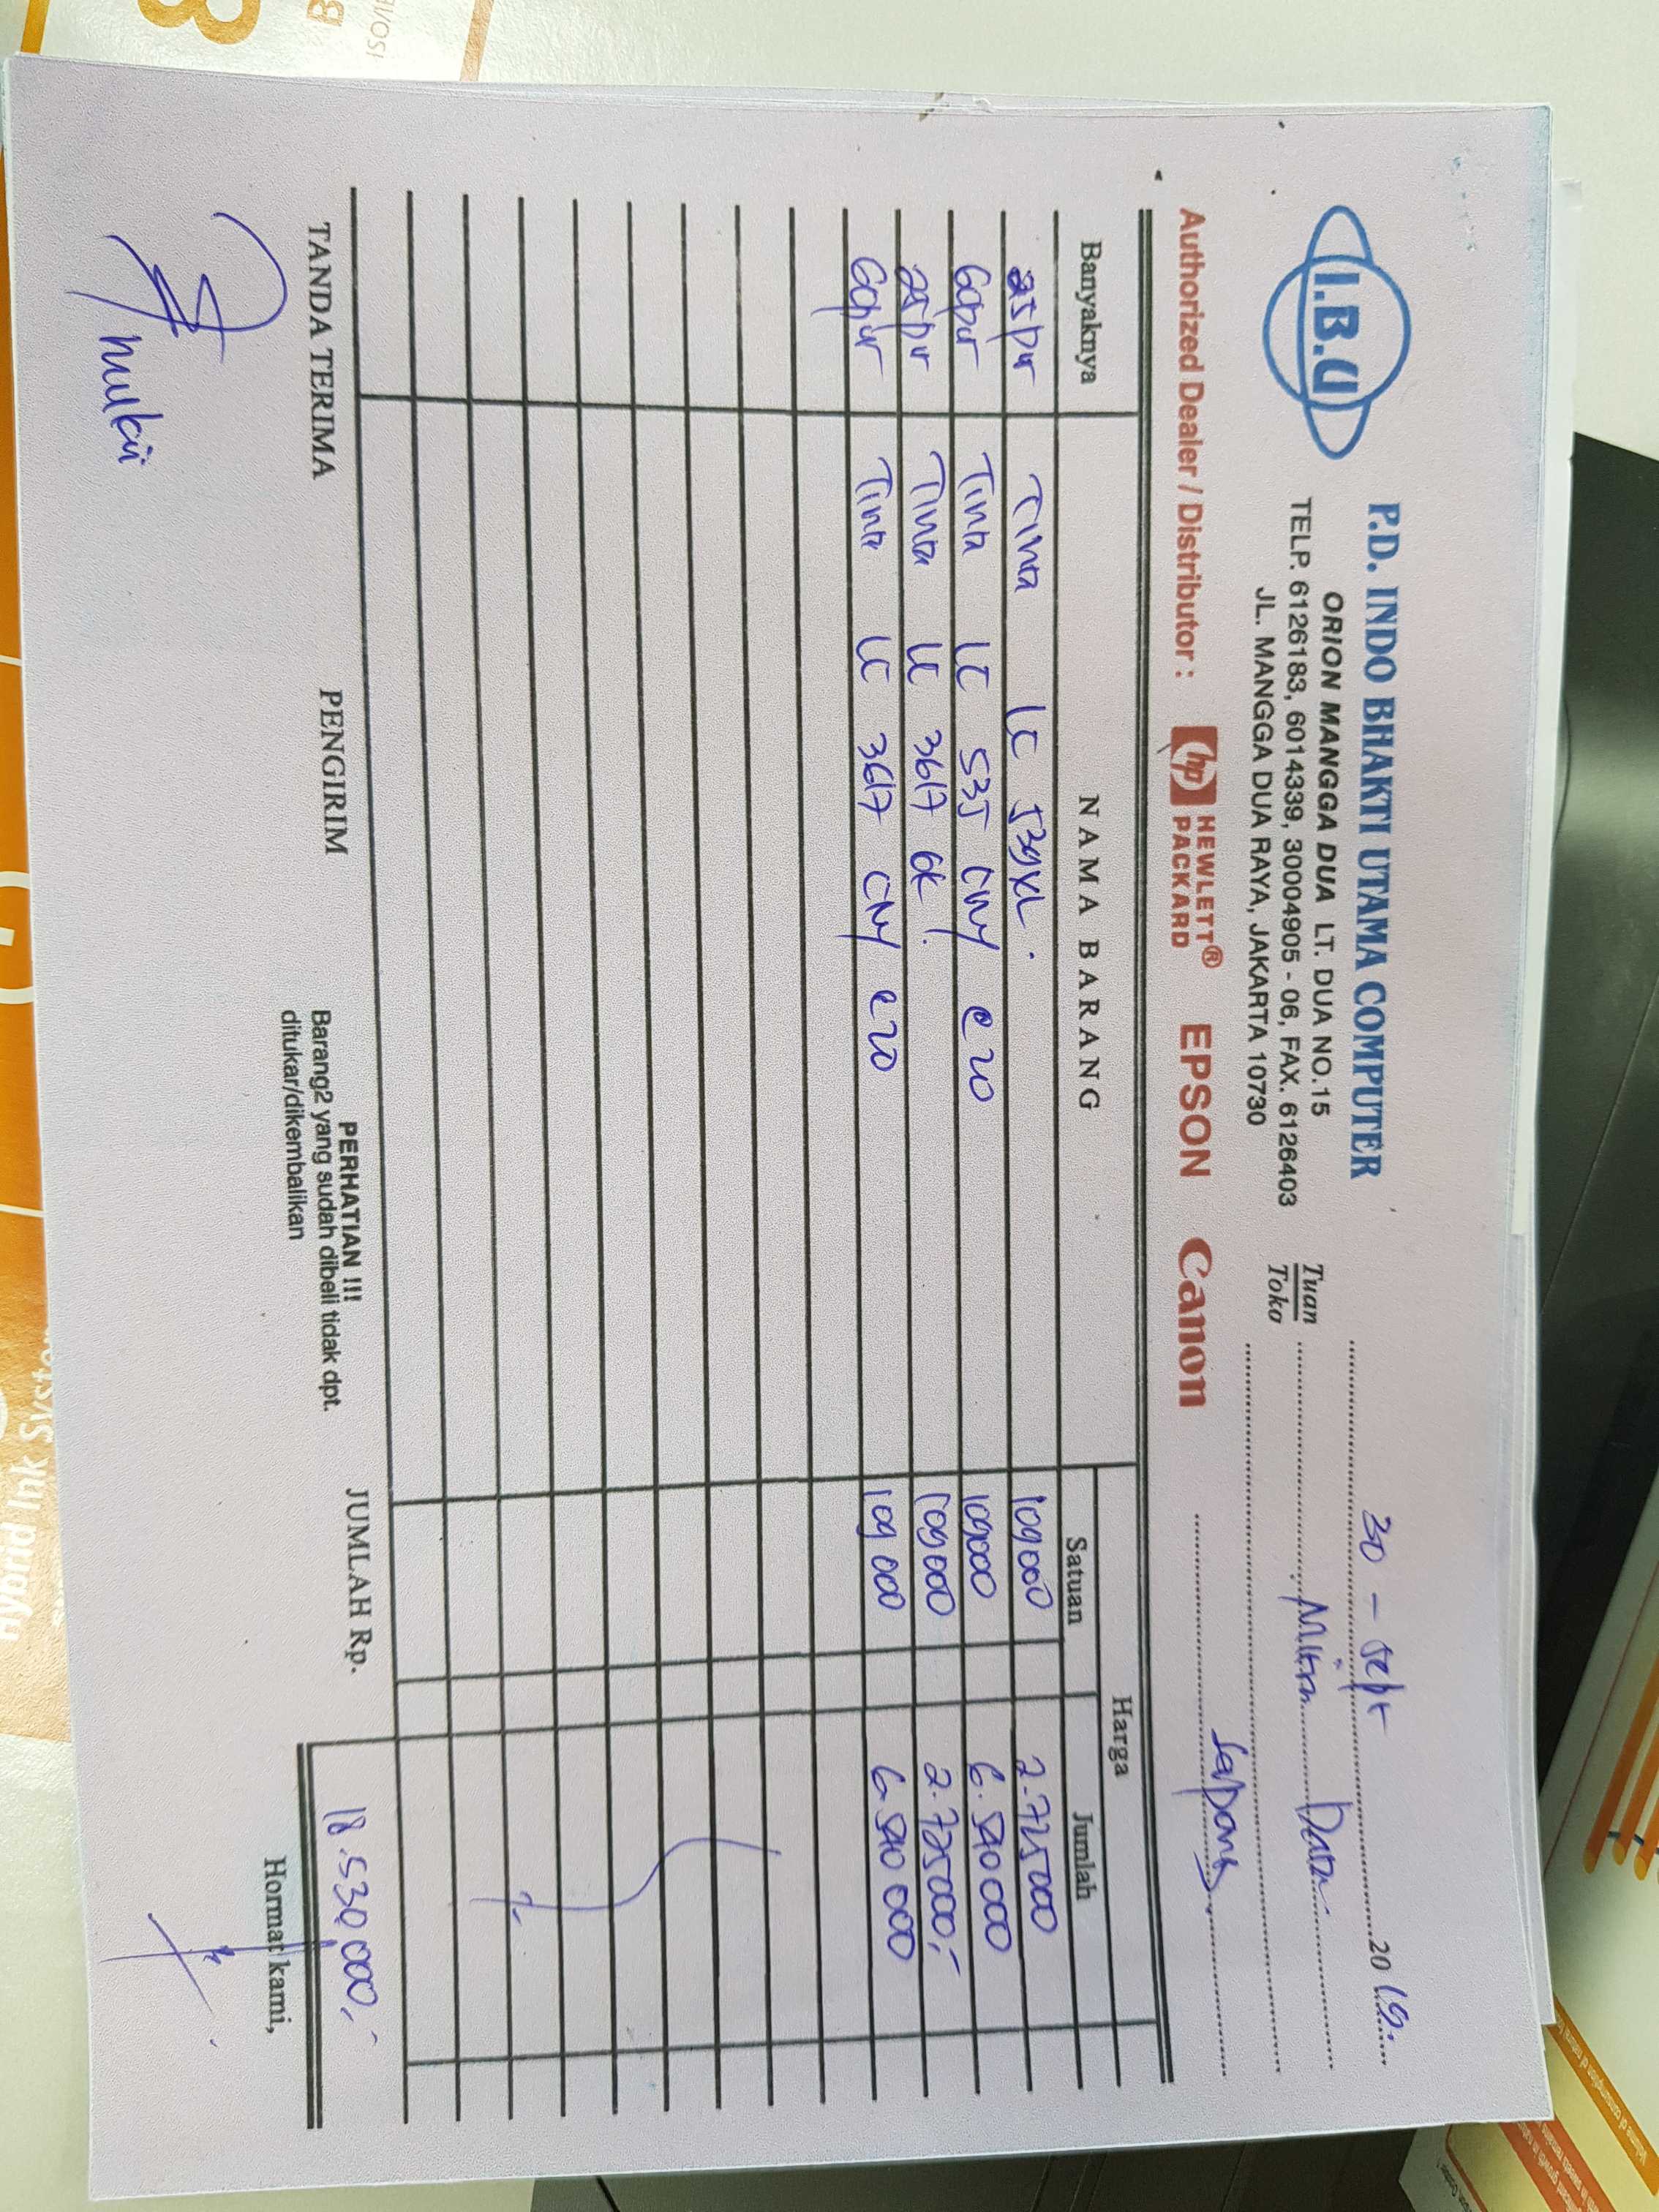 I.B.U
P.D. INDO BHAKTI UTAMA COMPUTER
ORION MANGGA DUA LT. DUA NO.15
TELP. 6126183, 6014339, 30004905 - 06, FAX. 6126403
JL. MANGGA DUA RAYA, JAKARTA 10730
30 - Sept 2019.
Tuan
Toko
Mitra Data
Serpong
Authorized Dealer / Distributor : hp HEWLETT® PACKARD EPSON Canon
Banyaknya NAMA BARANG Harga
Satuan Jumlah
25 pcr Tinta LC 539XL. 109000 2.725000
60pcr Tinta LC 535 CMY @ 20 109000 6.540000
25pcr Tinta LC 3617 BK 109000 2.725000,-
60pcr Tinta LC 3617 CMY @20 109000 6.540000
TANDA TERIMA PENGIRIM
PERHATIAN !!!
Barang2 yang sudah dibeli tidak dpt.
ditukar/dikembalikan
JUMLAH Rp. 18.530.000,-
Hormat kami,
ISO/OSI
Hybrid Ink System